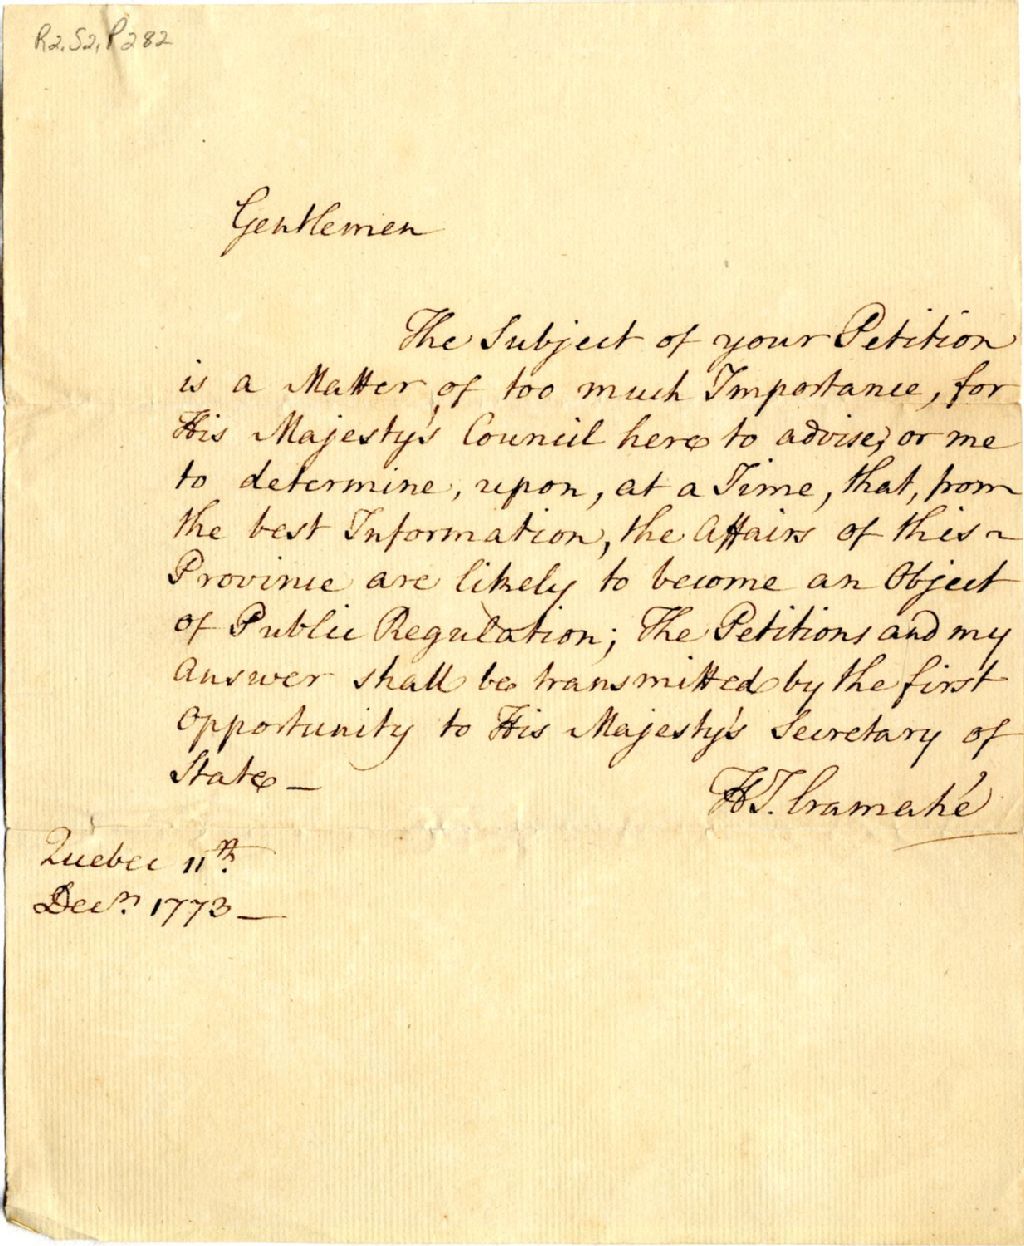 R2, S2, P282
Gentlemen
The Subject of your Petition
is a Matter of too much Importance, for
His Majesty's Council here to advise, or me
to determine, upon, at a Time, that, from
the best Information, the Affairs of this
Province are likely to become an Object
of Public Regulation; The Petitions and my
Answer shall be transmitted by the first
Opportunity to His Majesty's Secretary of
State —
HT. Cramahé
Quebec 11th.
Decr. 1773 —